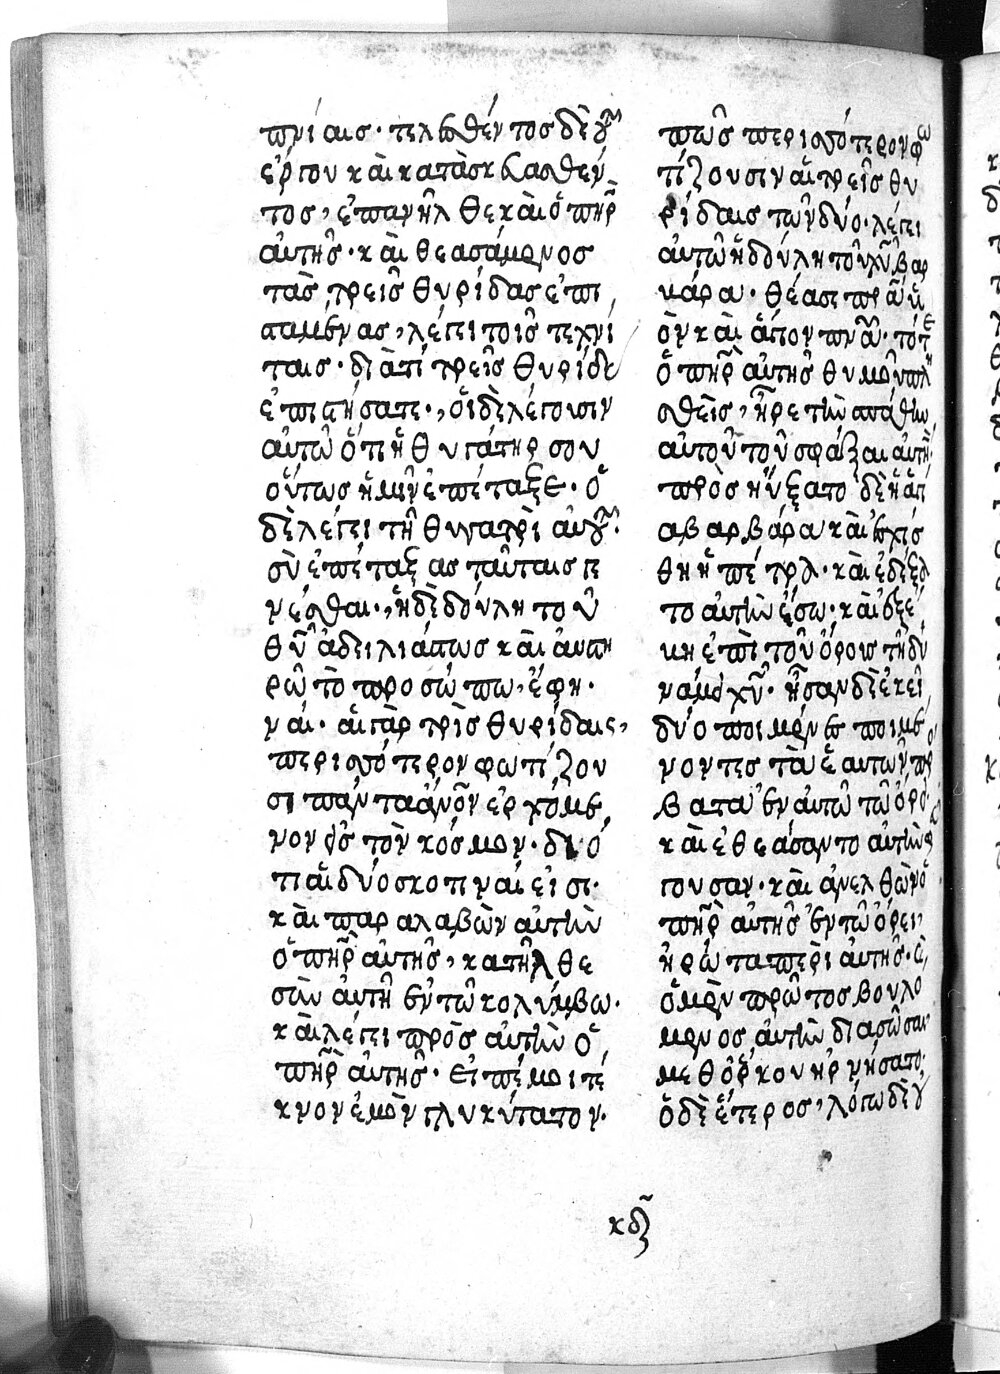 πνίαις· τελεσθέντος δὲ τοῦ
ἔργου καὶ κατασκευασθέν
τος, ἐπανῆλθε καὶ ὁ πηρ
αὐτῆς· καὶ θεασάμενος
τὰς τρεῖς θυρίδας ἐπι
σταμένας, λέγει τοῖς τεχνί
ταις· διὰ τί τρεῖς θυρίδας
ἐποιήσατε·, οἱ δὲ λέγουσιν
αὐτῶ ὅτι ἡ θυγάτηρ σου
οὕτως ἡμῖν ἐπέταξε· ὁ
δὲ λέγει τῇ θυγατρὶ αὐτοῦ·
σὺ ἐπέταξας ταύταις γε
νέσθαι·, ἡ δὲ δούλη τοῦ
θυ ἀδειλιάτως καὶ
ρῶ τῶ προσώπω, ἔφη·
ναί· αἱ γὰρ τρὶς θυρίδαις,
περισσότερον φωτίζου
σι πάντα ἀνον ἐρχόμε
νον εἰς τὸν κόσμον· διό
τι αἱ δύο σκοτιναί εἰσι·
καὶ παραλαβὼν αὐτὴν
ὁ πηρ αὐτῆς, κατῆλθε
σὺν αὐτῇ ἐν τῶ κολύμβω·
καὶ λέγει πρὸς αὐτὴν ὁ
πηρ αὐτῆς· εἰπέ μοι τέ
κνον ἐμὸν γλυκύτατον·
πῶς περισσότερον φω
τίζουσιν αἱ τρεῖς θυ
ρίδαις τῶν δύο· λέγει
αὐτῶ ἡ δούλη τοῦ χυ βαρ
βάρα· θέασε πρα κ
ὸν καὶ ἅγιον πνα· τότε
ὁ πηρ αὐτῆς θυμοῦ πλη
σθεὶς, ἦρε τὴν σπάθην
αὐτοῦ τοῦ σφάξαι αὐτήν·
προσηύξατο δὲ ἡ ἁγί
α βαρβάρα καὶ ἐσχίς
θη ἡ πέτρα· καὶ ἐδέξα
το αὐτὴν ἔσω· καὶ ἐξέ
βη ἐπὶ τοῦ ὄρους τῇ δυ
νάμει χυ· ἦσαν δὲ ἐκεῖ
δύο ποιμένες ποιμέ
νοντες τὰ ἑαυτῶν πρό
βατα ἐν αὐτῶ τῶ ὄρει·
καὶ ἐθεάσαντο αὐτὴν φε
γουσαν· καὶ ἀνελθὼν ὁ
πηρ αὐτῆς ἐν τῶ ὄρει,
ἠρώτα περὶ αὐτῆς· καὶ
ὁ μὲν πρῶτος βουλό
μενος αὐτὴν διασῶσαι
μεθ ὅρκου ἠρνήσατο·
ὁ δὲ ἕτερος, λόγω δὲ οὐ
κδ